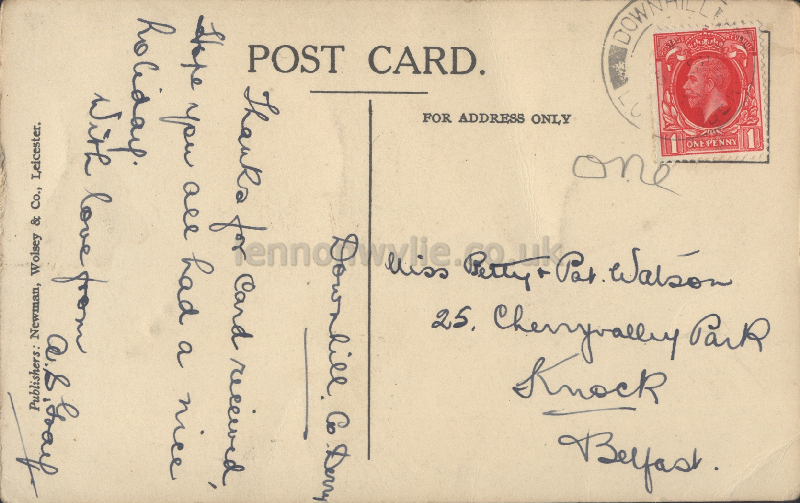 POST CARD.
FOR ADDRESS ONLY
DOWNHILL
ONE PENNY
1 1
one
Miss Betty & Pat. Watson
25. Cherryvalley Park
Knock
Belfast.
Downhill. Co Derry
Thanks for card received,
Hope you all had a nice
holiday.
With love from
Publishers: Newman, Wolsey & Co., Leicester.
lennonwylie.co.uk